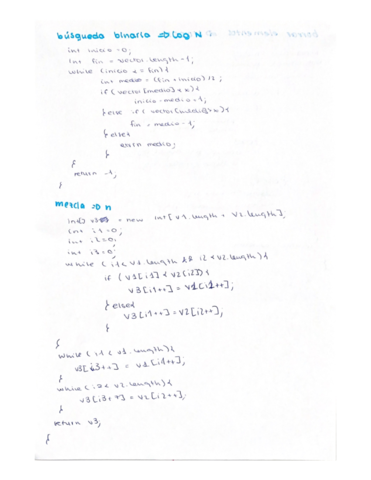 búsqueda binaria => log N
int inicio = 0;
int fin = vector.length - 1;
while (inicio <= fin) {
int medio = (fin + inicio) / 2;
if (vector[medio] < x) {
inicio = medio + 1;
} else if (vector[medio] > x) {
fin = medio - 1;
} else {
return medio;
}
}
return -1;
}
mezcla => n
int[] v3 = new int[v1.length + v2.length];
int i1 = 0;
int i2 = 0;
int i3 = 0;
while (i1 < v1.length && i2 < v2.length) {
if (v1[i1] < v2[i2]) {
v3[i3++] = v1[i1++];
} else {
v3[i3++] = v2[i2++];
}
}
while (i1 < v1.length) {
v3[i3++] = v1[i1++];
}
while (i2 < v2.length) {
v3[i3++] = v2[i2++];
}
return v3;
}